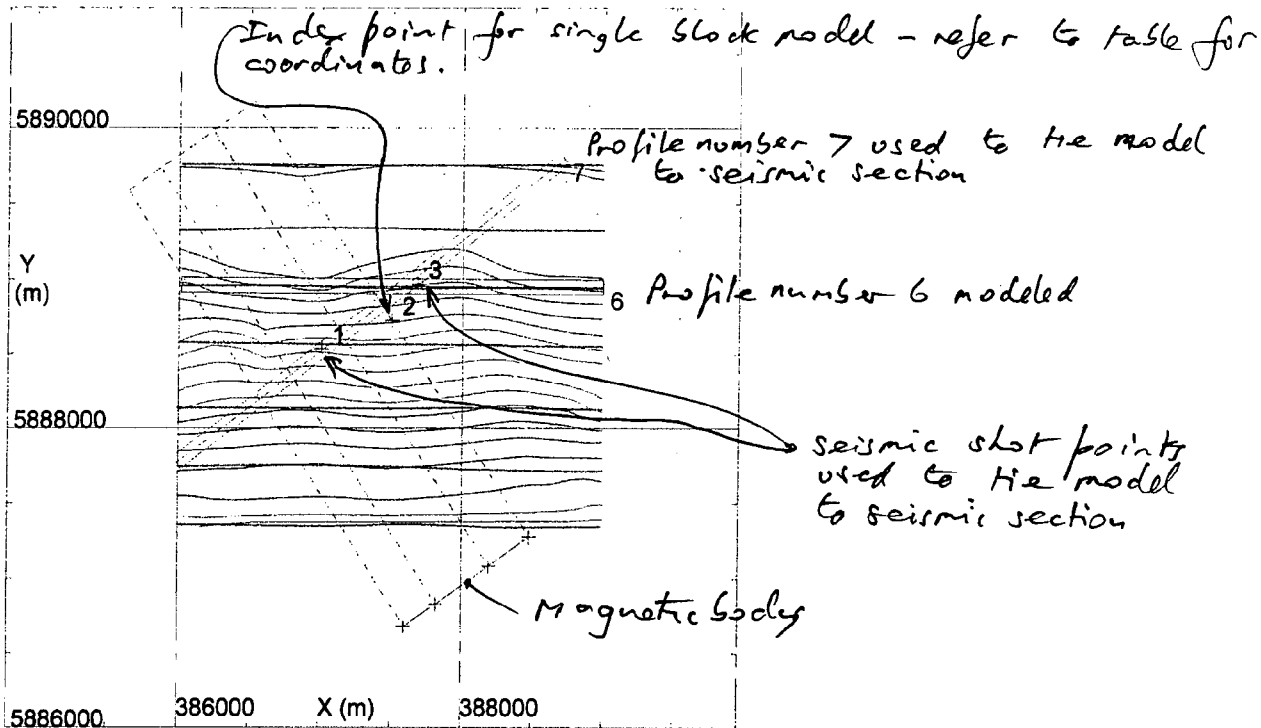 Index point for single block model - refer to table for
coordinates.
5890000
Profile number 7 used to tie model
to seismic section
7
Y
(m)
3
6 Profile number 6 modeled
2
1
5888000
seismic shot points
used to tie model
to seismic section
Magnetic body
386000 X (m) 388000
5886000